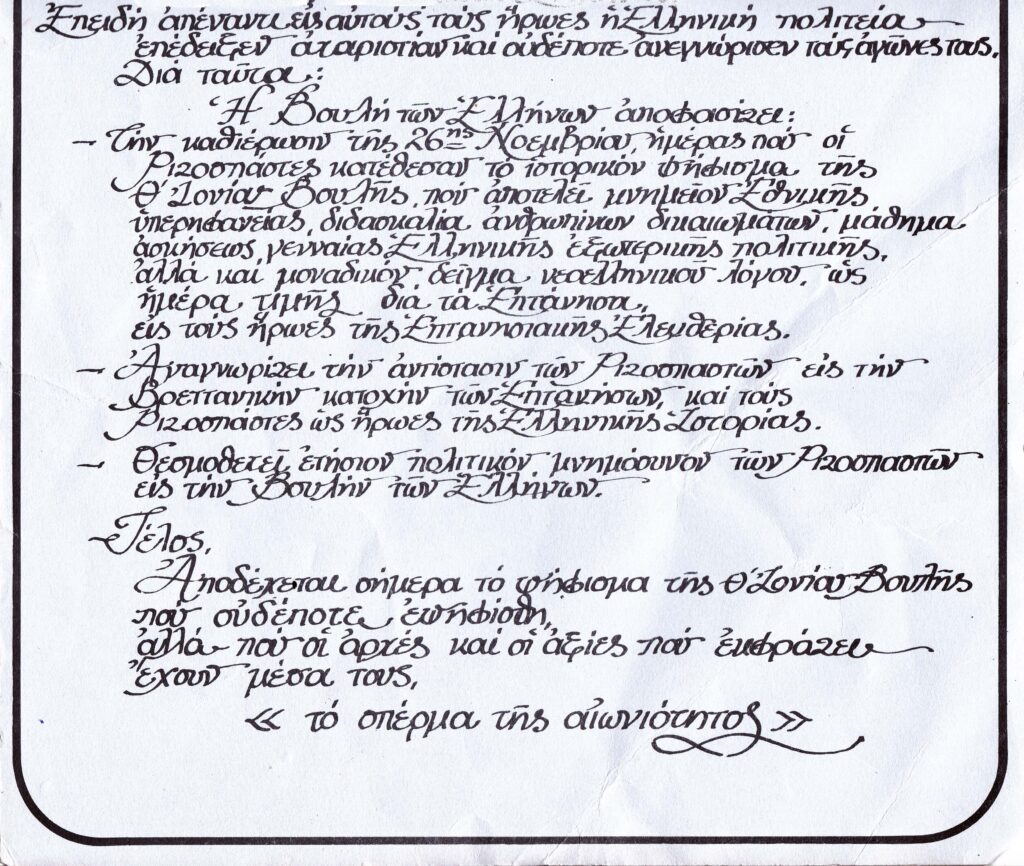 Ἐπειδή ἀπέναντι εἰς αὐτούς τούς ἥρωες ἡ Ἑλληνική πολιτεία
ἐπέδειξεν ἀχαριστίαν καί οὐδέποτε ἀνεγνώρισεν τούς ἀγῶνες τους.
Διά ταῦτα:
Ἡ Βουλή τῶν Ἑλλήνων ἀποφασίζει:
– Τήν καθιέρωσιν τῆς 26ης Νοεμβρίου, ἡμέρας πού οἱ
Ριζοσπάστες κατέθεσαν τό ἱστορικόν ψήφισμα τῆς
Θ' Ἰονίου Βουλῆς, πού ἀποτελεῖ μνημεῖον Ἐθνικῆς
ὑπερηφανείας, διδασκαλία ἀνθρωπίνων δικαιωμάτων, μάθημα
ἀσκήσεως γενναίας Ἑλληνικῆς ἐξωτερικῆς πολιτικῆς,
ἀλλά καί μοναδικόν δεῖγμα νεοελληνικοῦ λόγου, ὡς
ἡμέρα τιμῆς διά τά Ἑπτάνησα,
εἰς τούς ἥρωες τῆς Ἑπτανησιακῆς Ἐλευθερίας.
– Ἀναγνωρίζει τήν ἀντίστασιν τῶν Ριζοσπαστῶν εἰς τήν
Βρεττανικήν κατοχήν τῶν Ἑπτανήσων, καί τούς
Ριζοσπάστες ὡς ἥρωες τῆς Ἑλληνικῆς Ἱστορίας.
– Θεσμοθετεῖ ἐτήσιον πολιτικόν μνημόσυνον τῶν Ριζοσπαστῶν
εἰς τήν Βουλήν τῶν Ἑλλήνων.
Τέλος,
Ἀποδέχεται σήμερα τό ψήφισμα τῆς Θ' Ἰονίου Βουλῆς
πού οὐδέποτε ἐψηφίσθη,
ἀλλά πού οἱ ἀρχές καί οἱ ἀξίες πού ἐκφράζει
ἔχουν μέσα τους,
« τό σπέρμα τῆς αἰωνιότητος »